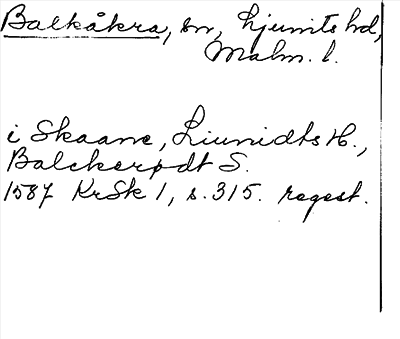 Balkåkra, sn, Ljunits hd,
Malm. l.
i Skaane, Liunidts H.,
Balckerødt S.
1587 KrSk 1, s. 315. regest.